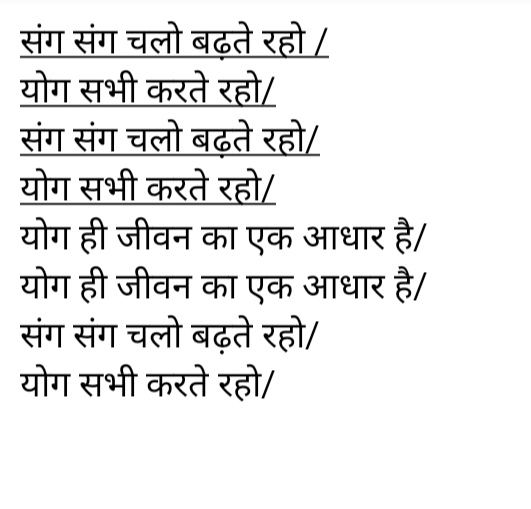 संग संग चलो बढ़ते रहो /
योग सभी करते रहो/
संग संग चलो बढ़ते रहो/
योग सभी करते रहो/
योग ही जीवन का एक आधार है/
योग ही जीवन का एक आधार है/
संग संग चलो बढ़ते रहो/
योग सभी करते रहो/